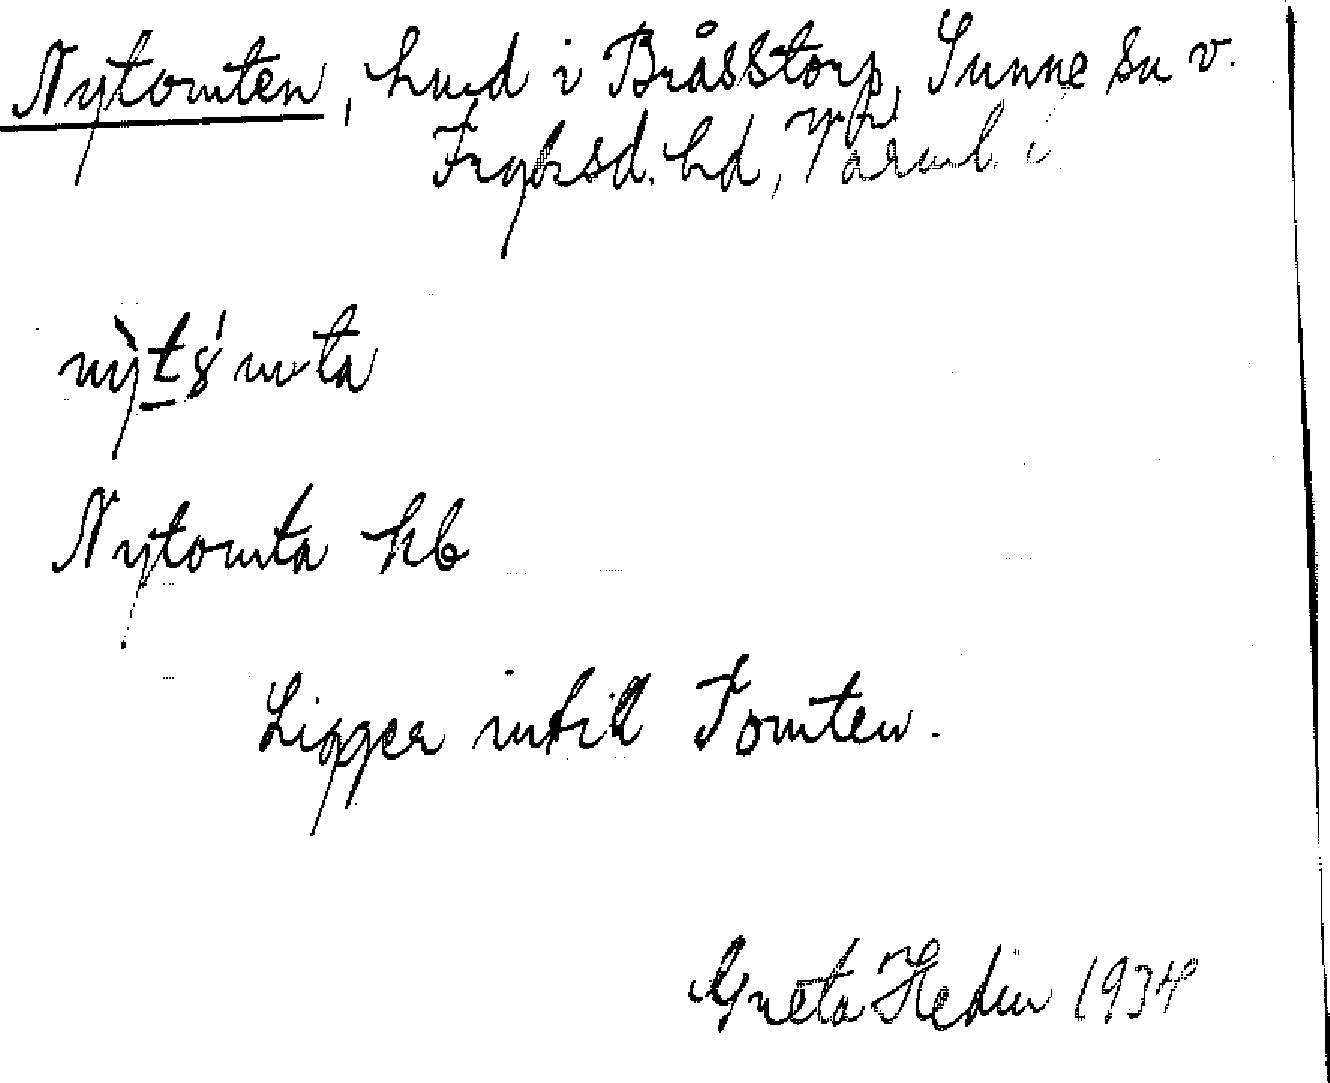 Nytomten, hmd i Bråsstorp, Sunne sn v.
Fryksd. hd, Värml.
Nytomta hb
Ligger intill Tomten.
Greta Hedin 1934